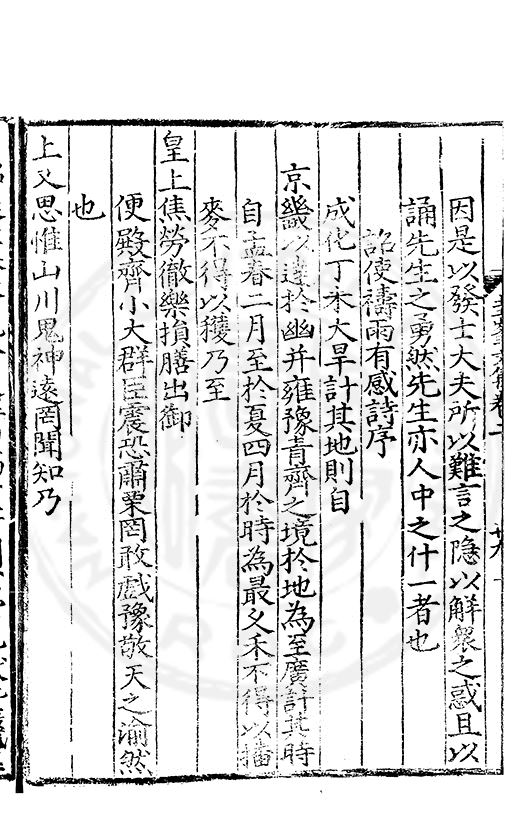 因是以發士大夫所以難言之隐以解衆之惑且以
誦先生之勇然先生亦人中之什一者也
詔使禱雨有感詩序
成化丁未大旱計其地則自
京畿以達於幽并雍豫青齊之境於地為至廣計其時
自孟春二月至於夏四月於時為最乆禾不得以播
麥不得以穫乃至
皇上焦勞徹樂損膳出御
便殿齊小大群臣震恐肅栗罔敢戲豫敬天之渝然
也
上又思惟山川鬼神遠罔聞知乃